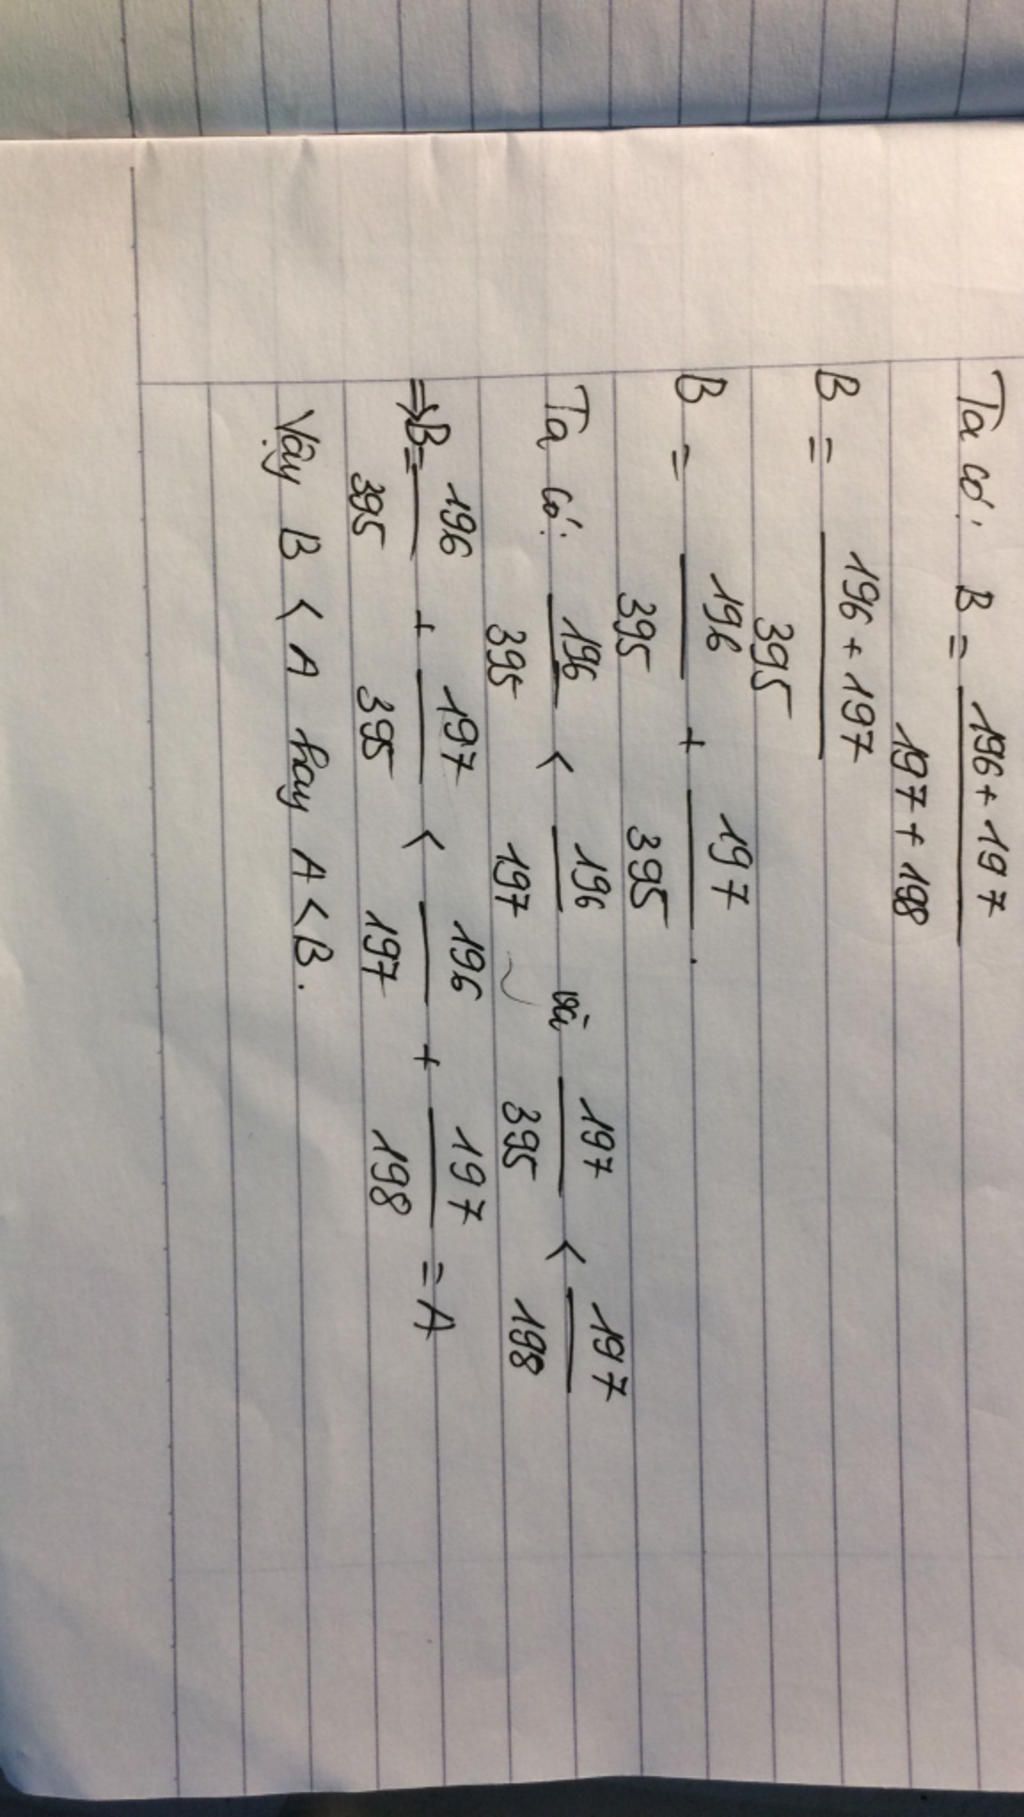 Ta có: B = \frac{196 + 197}{197 + 198}
B = \frac{196 + 197}{395}
B = \frac{196}{395} + \frac{197}{395}.
Ta có: \frac{196}{395} < \frac{196}{197} và \frac{197}{395} < \frac{197}{198}
=> B = \frac{196}{395} + \frac{197}{395} < \frac{196}{197} + \frac{197}{198} = A
Vậy B < A hay A < B.